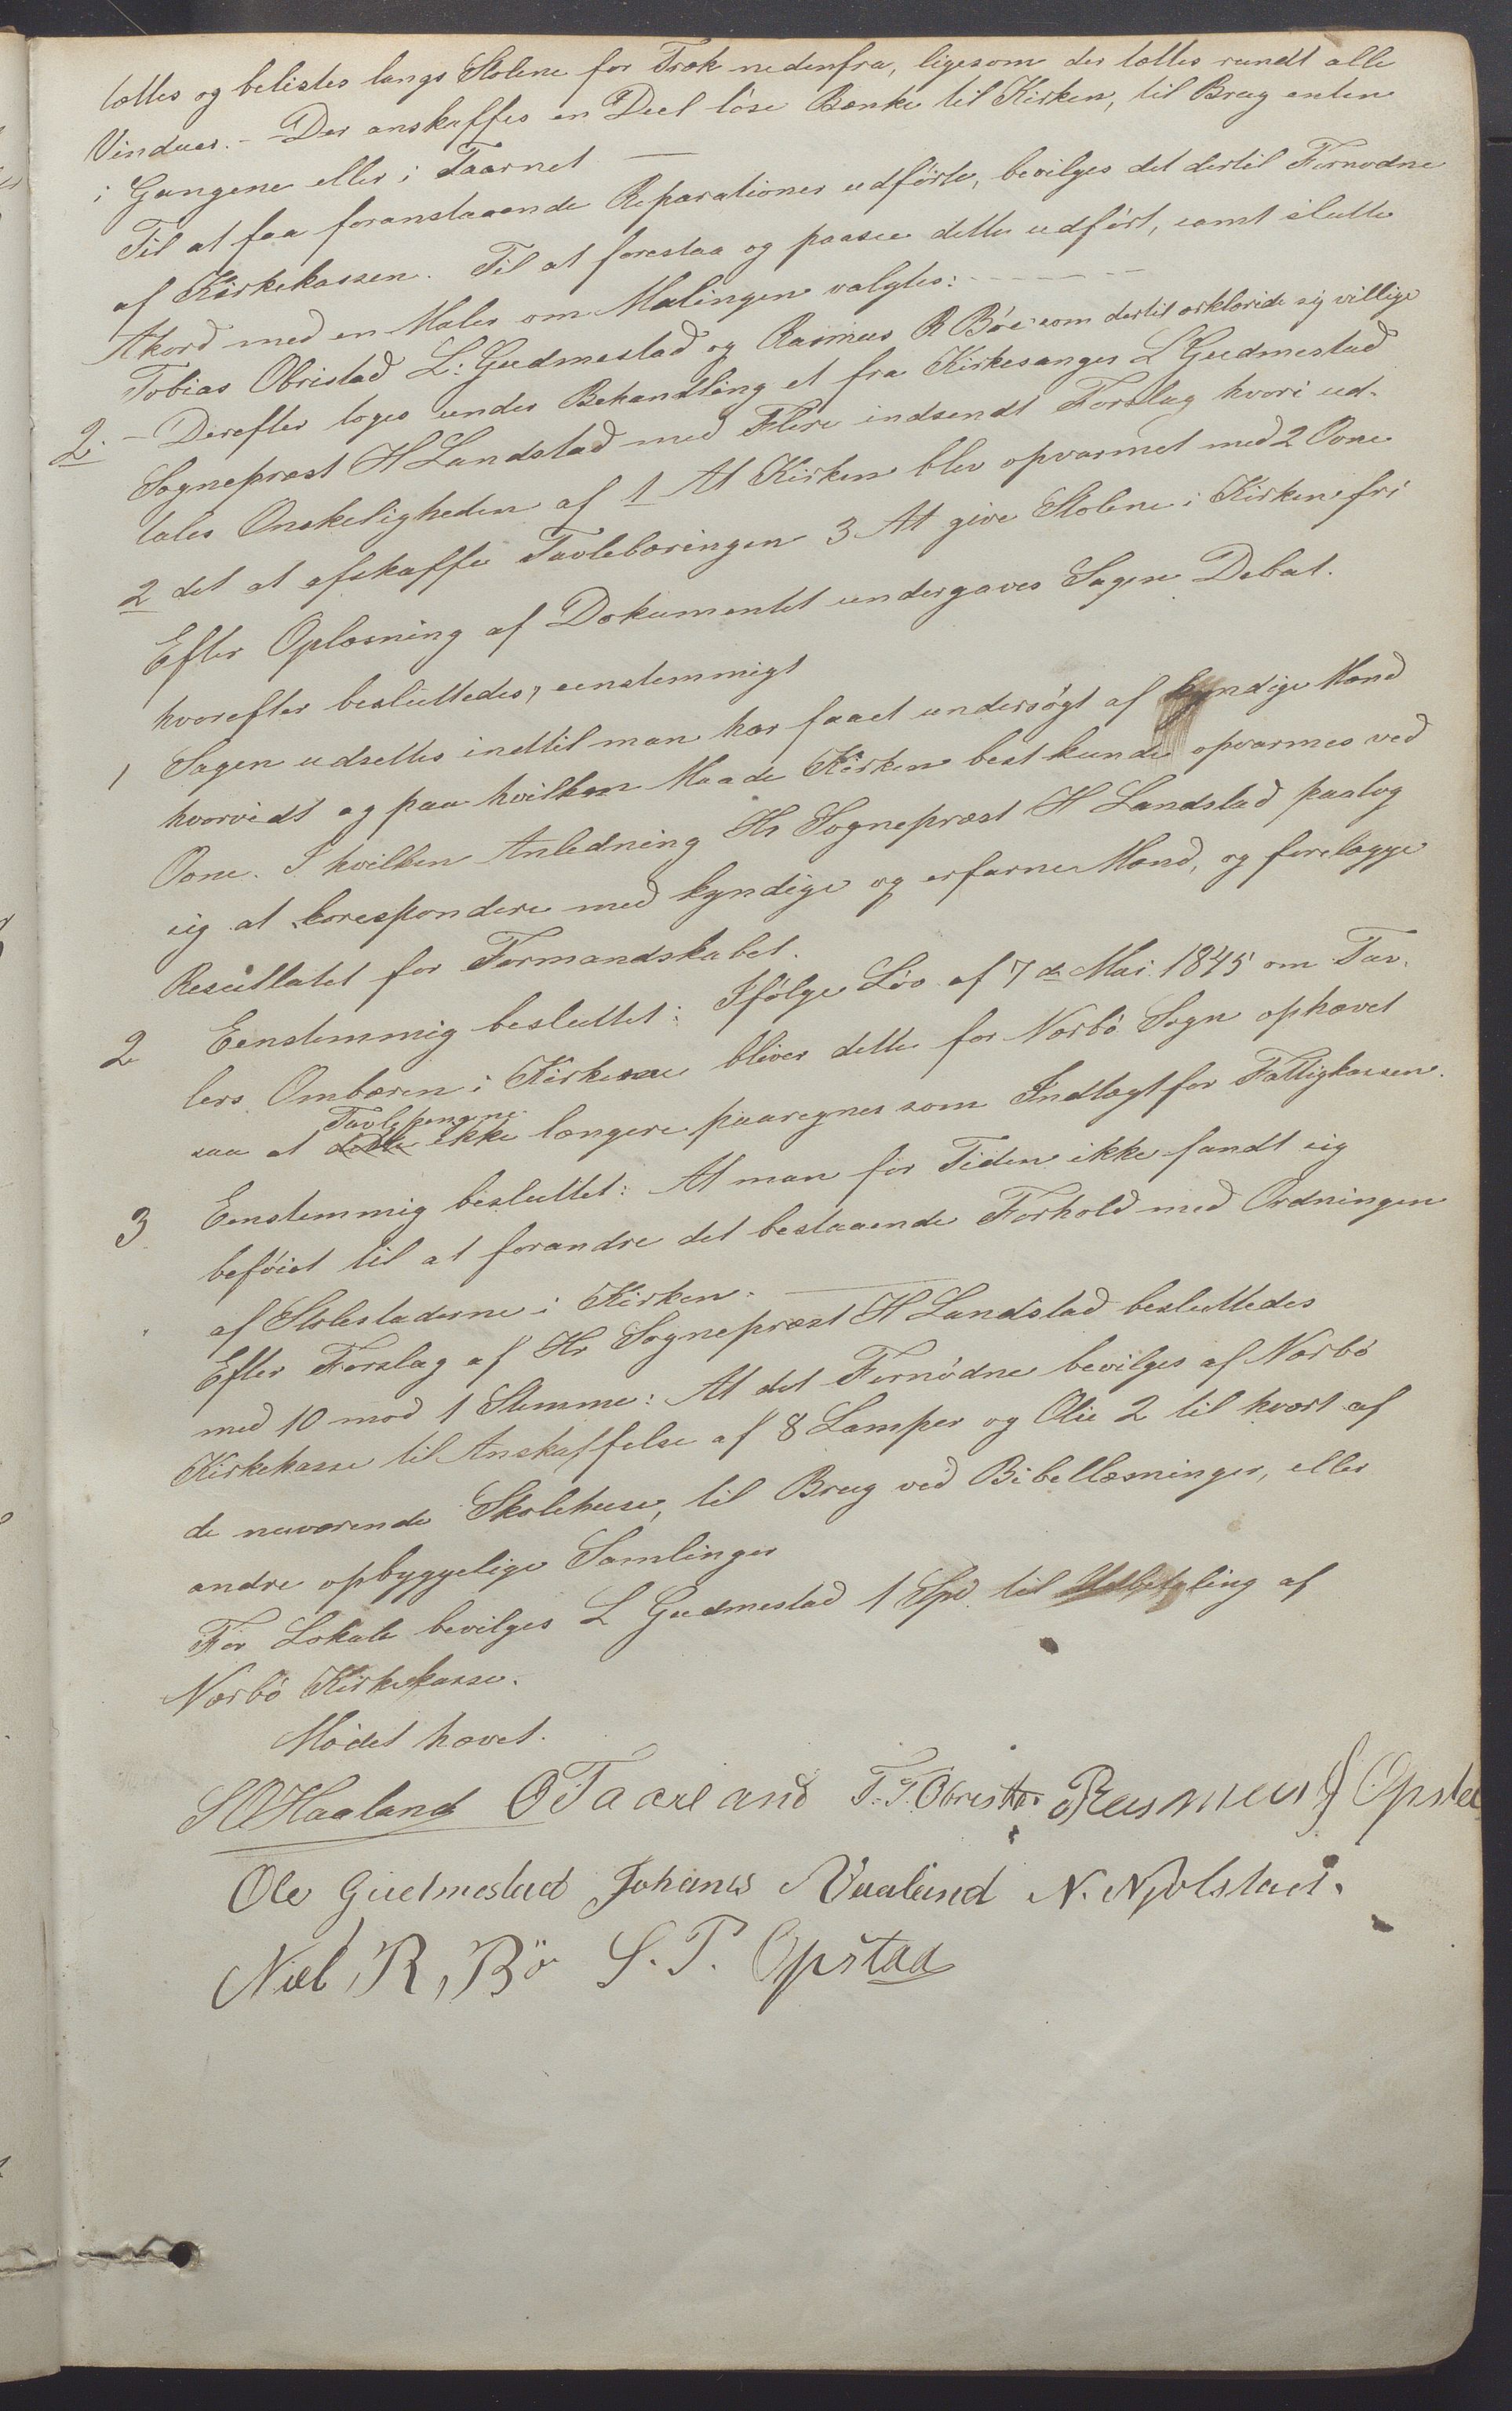 tættes og belistes langs Stolene for Træk nedenfra, ligesom der tættes rundt alle
Vinduer. - Der anskaffes en Deel löse Bænke til Kirken, til Brug enten
i Gangene eller i Taarnet —
Til at faa foranstaaende Reparationer udförte, bevilges det dertil Fornødne
af Kirkekassen. Til at forestaa og paasee dette udfört, samt slutte
Akord med en Maler om Malingen valgtes: - - - - -
Tobias Obrestad L: Gudmestad og Rasmus R Böe som dertil erklærede sig villige
2. - Derefter toges under Behandling et fra Kirkesanger L Gudmestad
Sogneprest H Landstad med Flere indsendt Forslag hvori ud-
tales Ønskeligheden af 1 At Kirken blev opvarmet med 2 Ovne
2 det at afskaffe Tavlebæringen 3 At give Stolene i Kirken fri
Efter Oplæsning af Dokumentet undergaves Sagen Debat.
hvorefter besluttedes, eenstemmigt
1 Sagen udsettes indtil man har faaet undersögt af kyndige Mænd
hvorvidt og paa hvilken Maade Kirken best kunde opvarmes ved
Ovne. I hvilken Anledning Hr Sogneprest H Landstad paatog
sig at korespondere med kyndige og erfarne Mænd, og forelægge
Resultatet for Formandskabet.
2 Eenstemmig besluttet: Ifölge Lov af 7 de Mai 1845 om Tav-
lers Ombæren i Kirkerne bliver dette for Nærbö Sogn ophævet
Tavlepengene
saa at dette ikke længere paaregnes som Indtægt for Fattigkassen.
3 Eenstemmig besluttet: At man for Tiden ikke fandt sig
beföiet til at forandre det bestaaende Forhold med Ordningen
af Stolestaderne i Kirken. —
Efter Forslag af Hr Sogneprest H Landstad besluttedes
med 10 mod 1 Stemme: At det Fornödne bevilges af Nærbö
Kirkekasse til Anskaffelse af 8 Lamper og Olie 2 til hvert af
de nuværende Skolehuse, til Brug ved Bibellæsninger, eller
andre opbyggelige Samlinger
For Lokale bevilges L Gudmestad 1 Spd. til Udbetaling af
Nærbö Kirkekasse.
Mödet hævet.
S O Haaland O Taarland T. T. Obrestad Rasmus J Opsta
Ole Gudmestad Johanes Vaaland N. Njolstad.
Niel, R, Bö S. T. Opstad